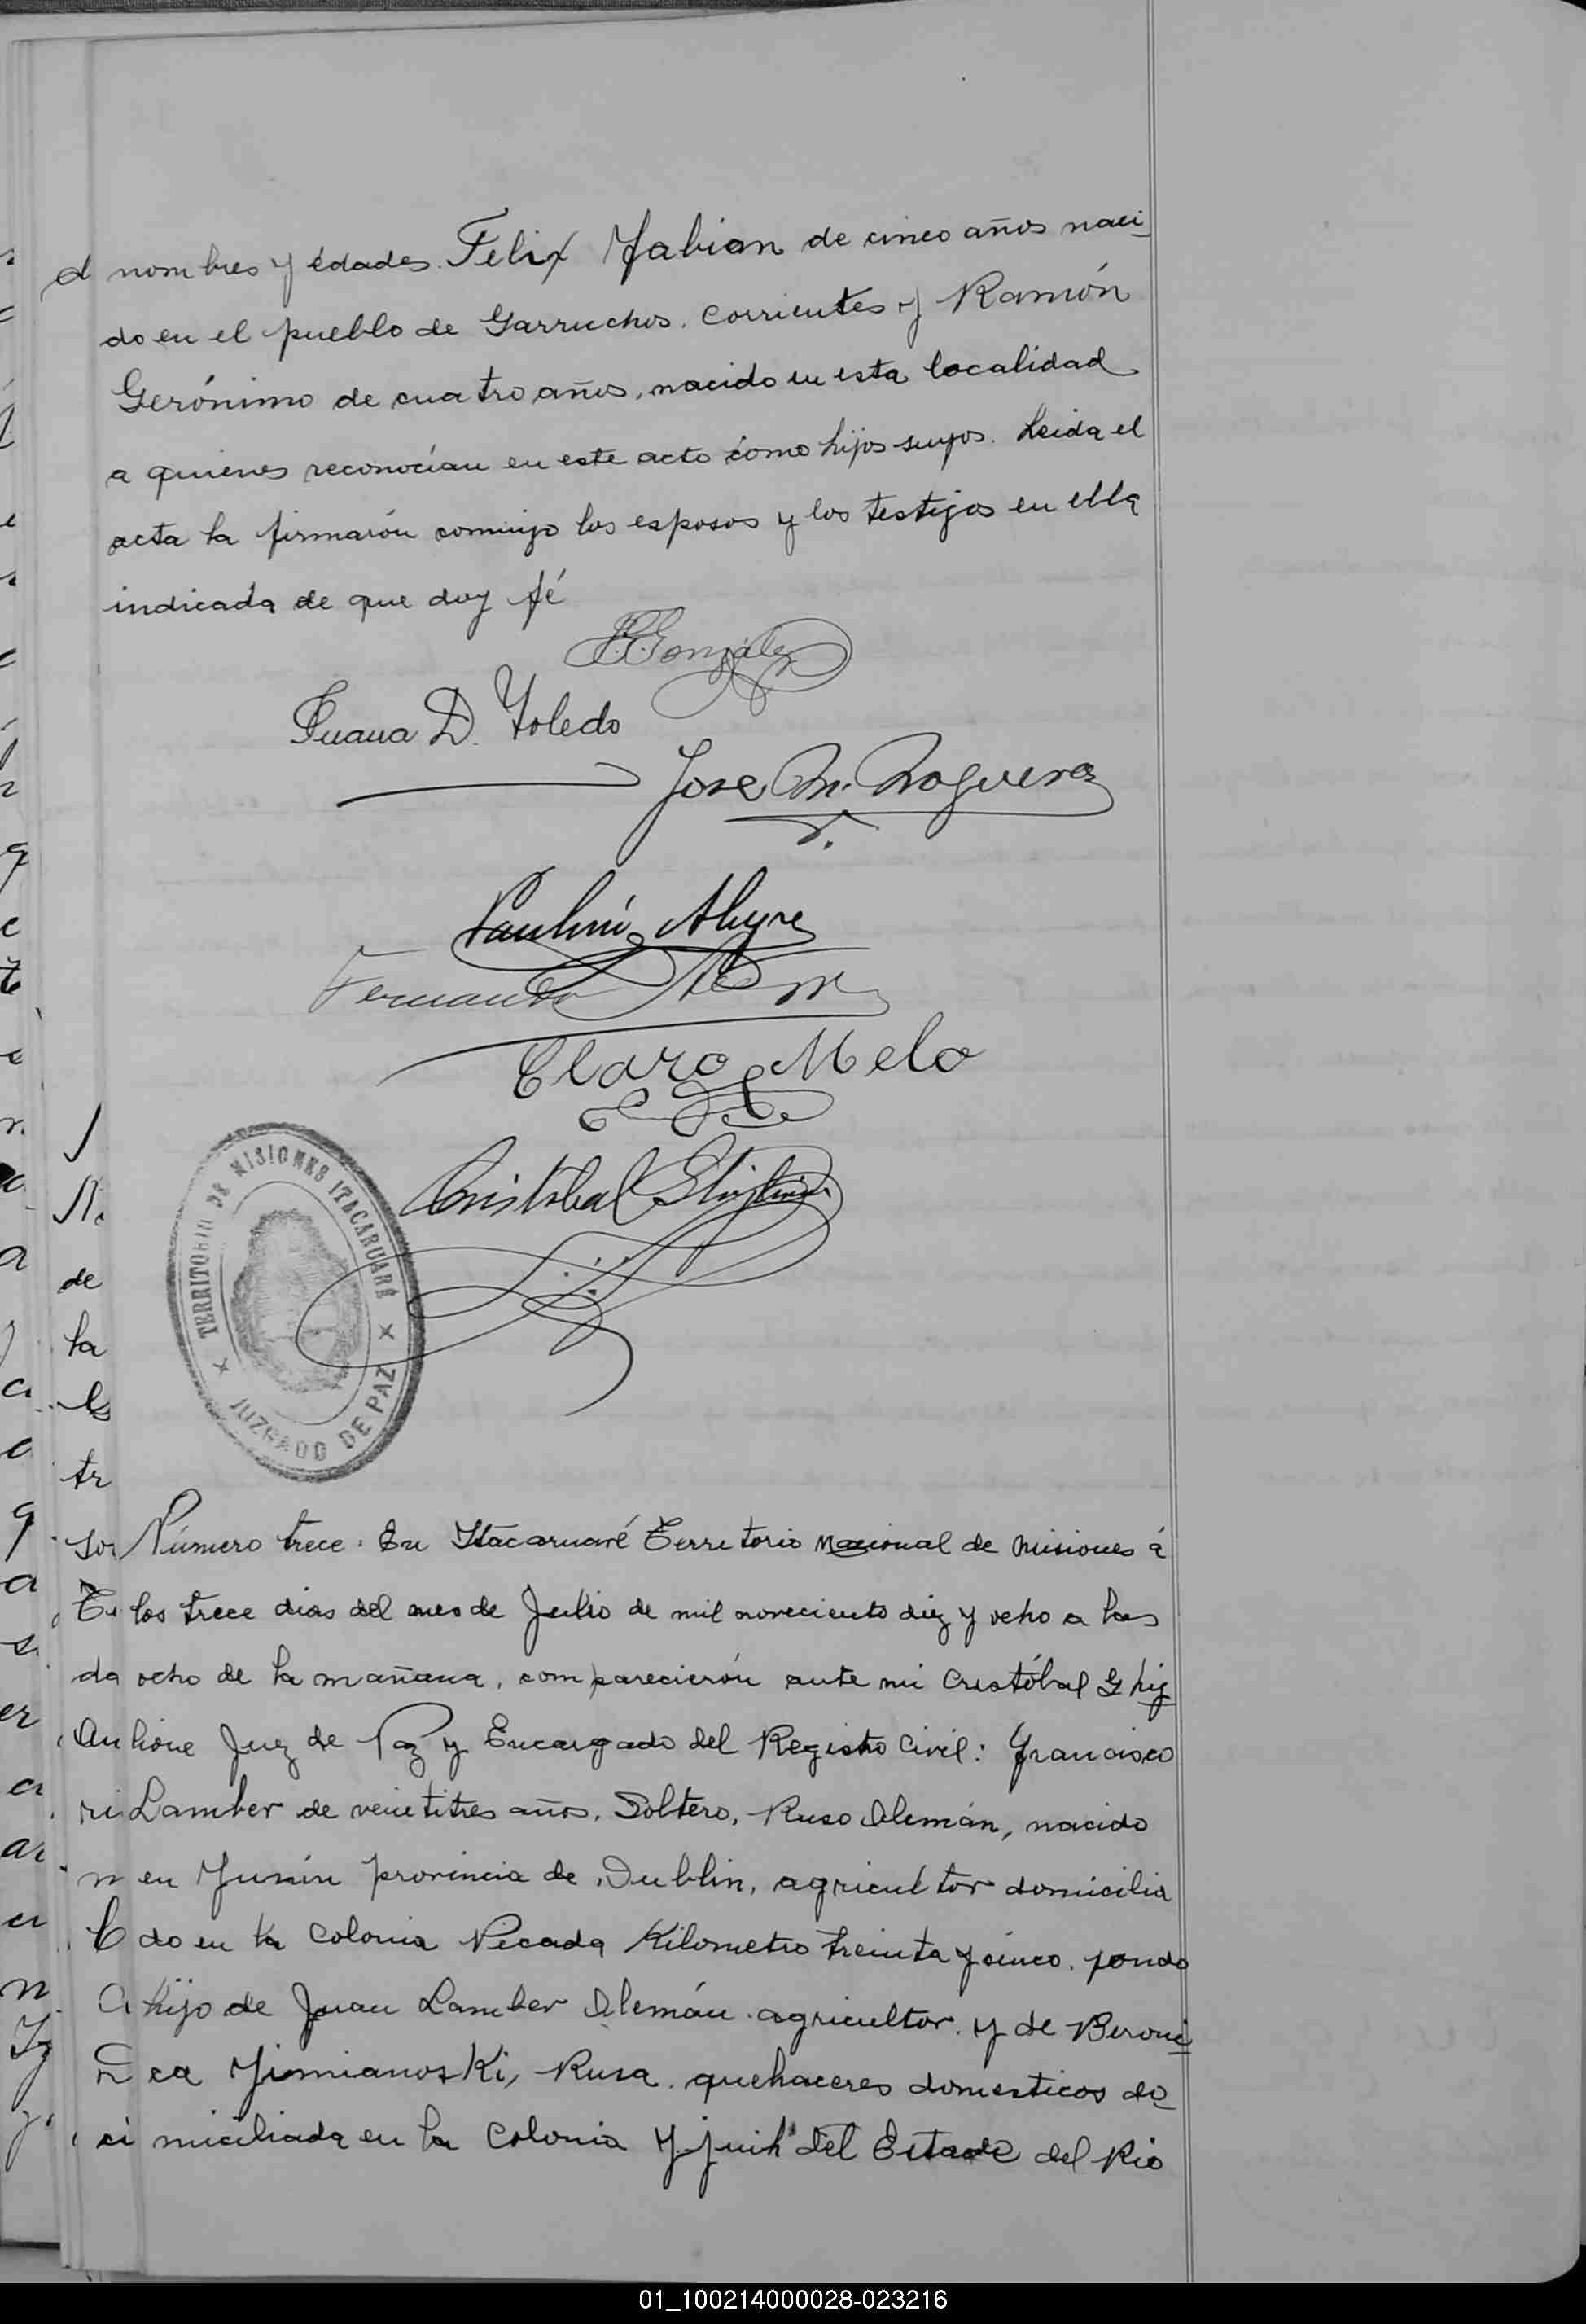 nombres y édades. Felix Fabian de cinco años naci
do en el pueblo de Garruchos. Corrientes y Ramón
Gerónimo de cuatro años, nacido en esta localidad
a quienes reconocían en este acto como hijos suyos. Leida el
acta la firmarón conmigo los esposos y los testigos en ella
indicada de que doy fé
González
Juana D. Toledo
Jose M. Noguera
Paulino Alegre
Fernando
Claro Melo
Cristobal
TERRITORIO DE MISIONES ITACARUARÉ
JUZGADO DE PAZ
Número trece: En Itacaruaré Territorio Nacional de Misiones á
los trece dias del mes de Julio de mil noveciento diez y ocho a las
ocho de la mañana, comparecierón ante mi Cristóbal Ghig
lione Juez de Paz y Encargado del Registro Civil: Francisco
Lamber de veinetitres años, Soltero, Ruso Alemán, nacido
en provincia de Dublin, agricultor domicilia
do en la Colonia Picada Kilometro treinta y cinco.
hijo de Juan Lamber Alemán agricultor y de Beroni
ca Rusa. quehaceres domesticos do
miciliada en la Colonia Yjuih del Estado del Rio
01_100214000028-023216